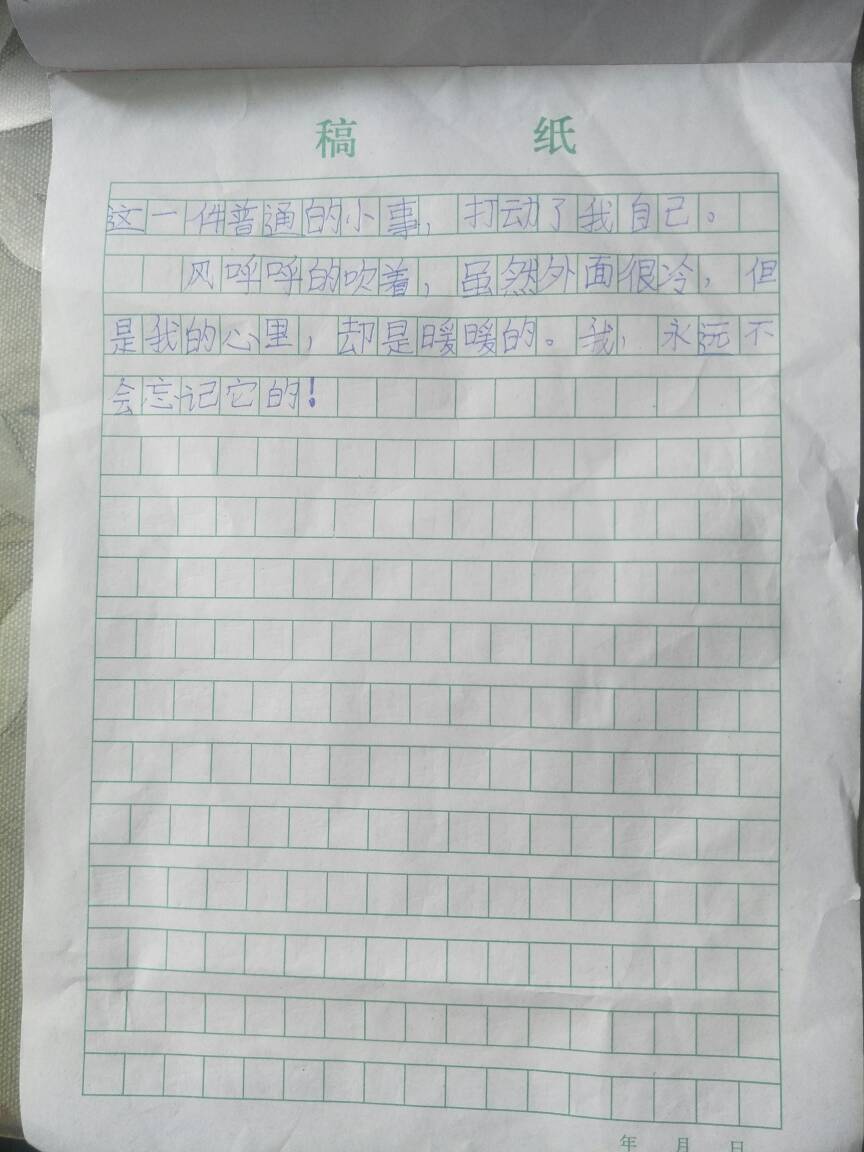 稿 纸
这一件普通的小事，打动了我自己。
风呼呼的吹着，虽然外面很冷，但
是我的心里，却是暖暖的。我，永远不
会忘记它的！
年 月 日